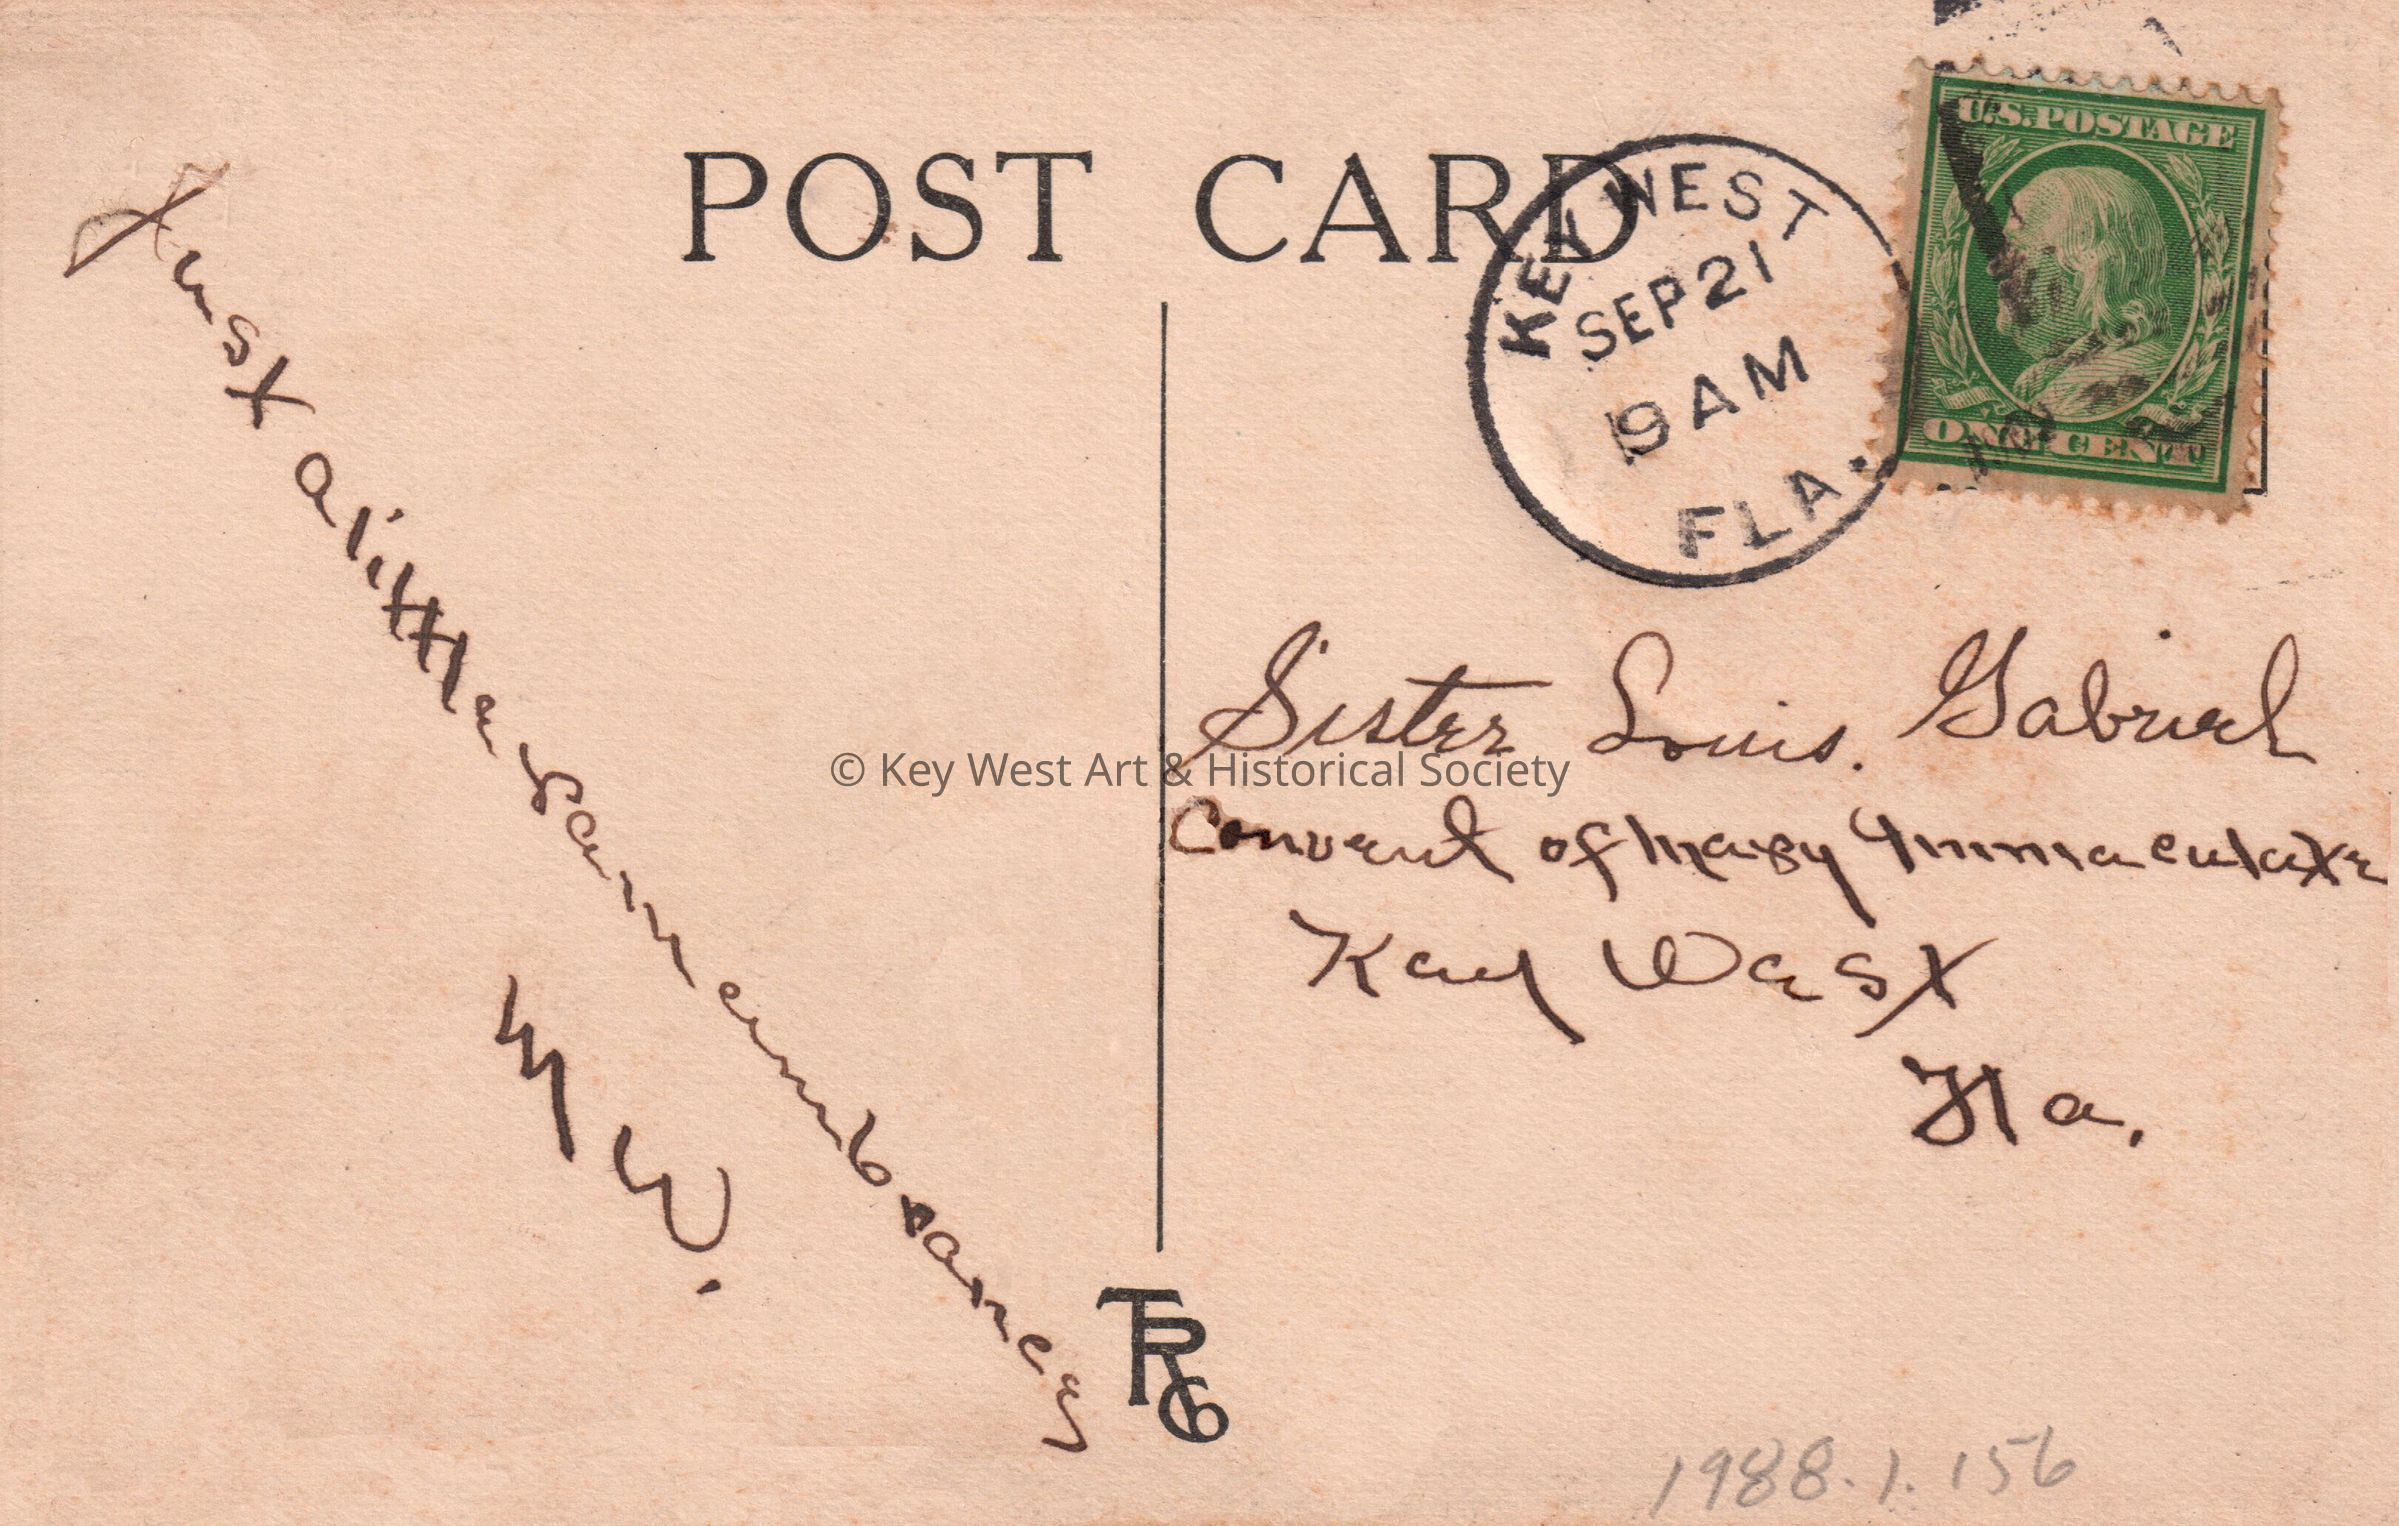 POST CARD
KEY WEST
SEP 21
9 AM
FLA.
U.S. POSTAGE
ONE CENT
Just a little remembrances
M W.
Sister Louis. Gabriel
Convent of Mary Immaculate
Key West
Fla.
© Key West Art & Historical Society
TRCo
1988.1.156